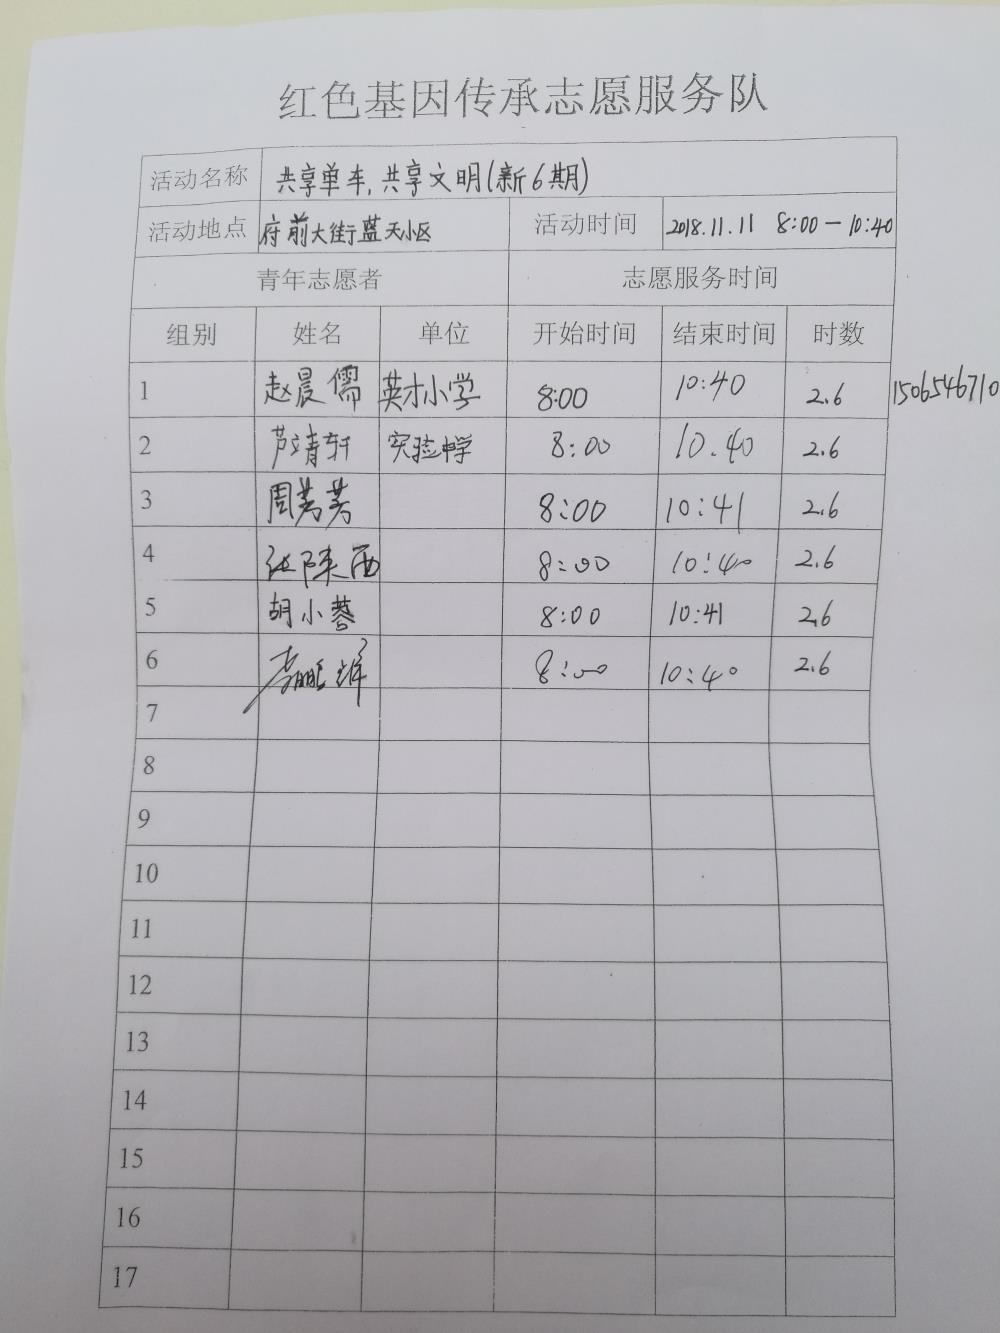 红色基因传承志愿服务队
活动名称 共享单车,共享文明(新6期)
活动地点 府前大街蓝天小区 活动时间 2018.11.11 8:00-10:40
青年志愿者 志愿服务时间
组别 姓名 单位 开始时间 结束时间 时数
1 赵晨儒 英才小学 8:00 10:40 2.6 1506546710
2 芦靖轩 实验中学 8:00 10.40 2.6
3 周 8:00 10:41 2.6
4 张陕西 8:00 10:40 2.6
5 胡小蓉 8:00 10:41 2.6
6 8:00 10:40 2.6
7
8
9
10
11
12
13
14
15
16
17